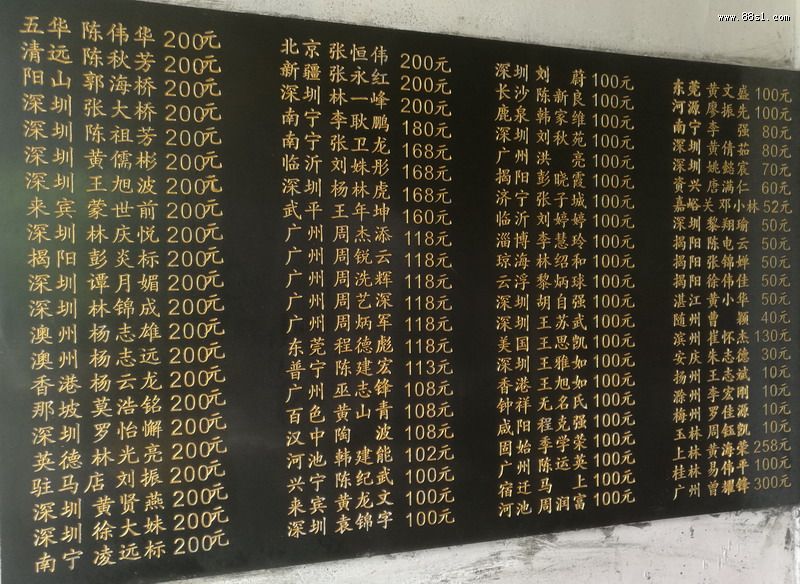 五华 陈伟华 200元
清远 陈秋芳 200元
阳山 郭海桥 200元
深圳 张大桥 200元
深圳 陈祖芳 200元
深圳 黄儒彬 200元
深圳 王旭波 200元
来宾 蒙世前 200元
深圳 林庆悦 200元
揭阳 彭炎标 200元
深圳 谭月媚 200元
深圳 林锦成 200元
澳州 杨志雄 200元
澳州 杨志远 200元
香港 杨云龙 200元
那坡 莫浩铭 200元
深圳 罗怡懈 200元
英德 林光亮 200元
驻马店 刘振 200元
深圳 黄贤燕 200元
深圳 徐大妹 200元
南宁 凌远标 200元
北京 张恒伟 200元
新疆 张永红 200元
深圳 林一峰 200元
南宁 李耿鹏 180元
南宁 张卫龙 168元
临沂 刘姝彤 168元
深圳 杨林虎 168元
武平 王年坤 160元
广州 周杰添 118元
广州 周锐云 118元
广州 周洗辉 118元
广州 周艺深 118元
广州 周炳军 118元
东莞 程德彪 118元
普宁 陈建宏 113元
广州 巫志锋 108元
百色 黄山青 108元
汉中 陶波 108元
河池 韩建能 102元
兴宁 陈纪武 100元
来宾 黄龙文 100元
深圳 袁锦宇 100元
深圳 刘蔚 100元
长沙 陈新良 100元
鹿泉 韩家维 100元
深圳 刘秋苑 100元
广州 洪亮 100元
揭阳 彭晓霞 100元
济宁 张子城 100元
临沂 刘婷婷 100元
淄博 李慧玲 100元
琼海 林绍和 100元
云浮 黎炳球 100元
深圳 胡自强 100元
深圳 王苏武 100元
美国 王思凯 100元
深圳 王雅如 100元
香港 王旭如 100元
钟祥 无名氏 100元
咸阳 程克强 100元
固始 季学荣 100元
广州 陈运英 100元
宿迁 马上 100元
河池 周润富 100元
东莞 黄文盛 100元
河源 廖振先 100元
南宁 李强 80元
深圳 黄倩茹 80元
深圳 姚懿宸 70元
资兴 唐满仁 60元
嘉峪关 邓小林 52元
深圳 黎翔瑜 50元
揭阳 陈电云 50元
揭阳 张锦婵 50元
揭阳 徐伟佳 50元
湛江 黄小华 50元
随州 曹颖 40元
滨州 崔怀杰 130元
安庆 朱志德 30元
扬州 王志斌 10元
滁州 李宏刚 10元
梅州 罗佳源 10元
玉林 周钰凯 10元
上林 黄海荣 258元
桂林 易伟平 100元
广州 曾耀锋 300元
www.88sl.com